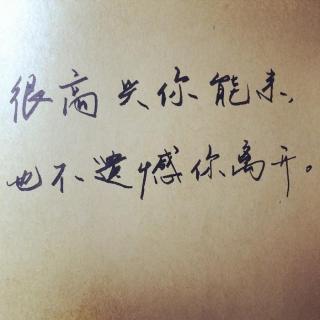 很高兴你能来，
也不遗憾你离开。